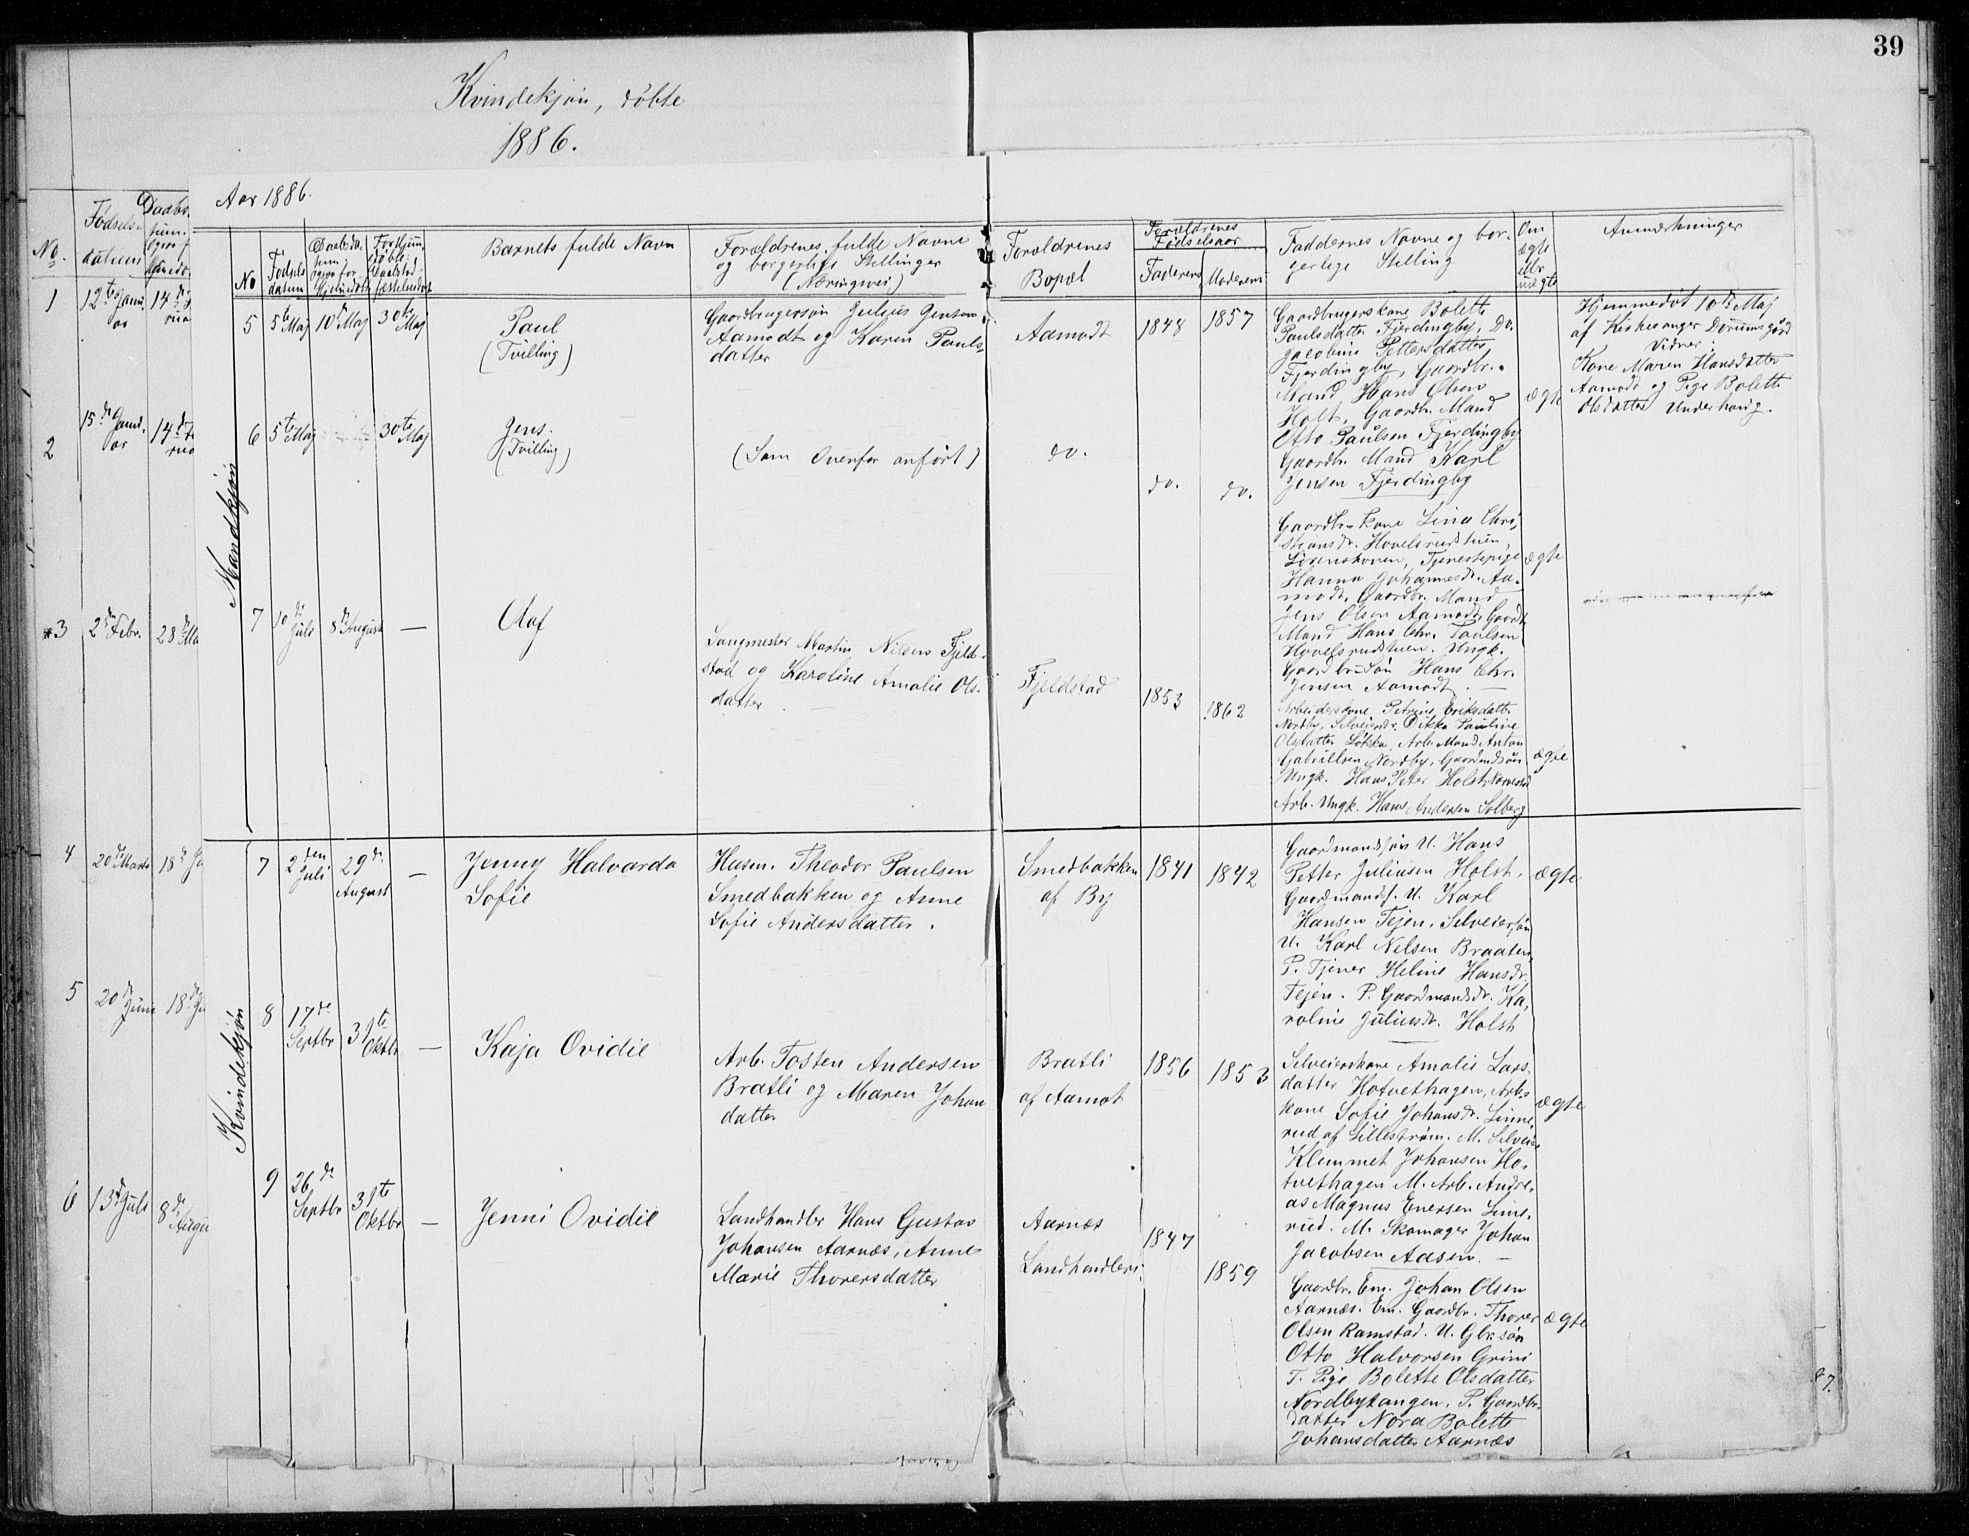 39
Kvindekjøn, døbte
1886.
No.
Fødsels
datum
Daabs
1
12te Janu
ar
14de
2
15de Janu
ar
14de
3
2den Febr.
28de Ma
4
20de Marts
18de
5
20de Juni
18de
6
13de Juli
8de Augu
Aar 1886.
No
Fødsels
datum
Barnets fulde Navn
Forældrenes fulde Navne
og borgerlige Stillinger
(Næringsvei)
Forældrenes
Bopæl
Forældrenes
Fødselsaar
Faderens
Moderens
Faddernes Navne og bor-
gerlige Stilling
Om
ægte
eller
uægte
Anmærkninger
Mandkjøn
5
5te Maj
10de Maj
30te Maj
Paul
(Tvilling)
Gaardbrugersøn Julius Jensen
Aamodt og Karen Pauls-
datter
Aamodt
1848
1857
Gaardbrugerskone Bolette
Paulsdatter Fjerdingby, Do.
Jacobine Pettersdatter
Fjerdingby, Gaardbr.
Mand Hans Olsen
Holt, Gaardbr. Mand
Otto Paulsen Fjerdingby
Gaardbr. Mand Karl
Jensen Fjerdingby
ægte
Hjemmedøbt 10de Maj
af Kirkesanger Dørumsgård
Vidner:
Kone Maren Hansdatter
Aamodt og Pige Bolette
Olsdatter Underhaug.
6
5te Maj
30te Maj
Jens.
(Tvilling)
(Som Ovenfor anført)
do.
do.
do.
Gaardbr. kone Lina Chri-
stiansdr. Hovelsrudstuen,
Lørenskoven, Tjenestepige
Hanna Johannesdr. Aa-
modt, Gaardbr. Mand
Jens Olsen Aamodt, Gaardb.
Mand Hans Chr. Paulsen
Hovelsrudstuen. Ungk.
Gaardbr. Søn Hans Chr.
Jensen Aamodt. —
ægte
7
10de Juli
8de August
—
Olaf
Saugmester Martin Nilsen Fjeld-
stad og Karoline Amalie Ols-
datter
Fjeldstad
1853
1862
Arbeiderskone Petrine Eriksdatter
Nordby, Selveierdr. Dikka Pauline
Olsdatter Løkka, Arb. Mand Anton
Gabrielsen Nordby, Gaardmdsøn
Ungk. Hans Peter Holst
Arb. Ungk. Hans Andersen Solberg
ægte
Kvindekjøn
7
2den Juli
29de August
—
Jenny Halvarda
Sofie
Husm. Theodor Paulsen
Smedbakken og Anne
Sofie Andersdatter.
Smedbakken
af By
1841
1842
Gaardmandsøn U. Hans
Petter Juliusen Holst,
Gaardmands. U. Karl
Hansen Tejen, Selveiersøn
U. Karl Nilsen Braaten,
P. Tjener Heline Hansdr.
Tejen. P. Gaardmandsdr. Ka-
roline Juliusdr. Holst
ægte
8
17de Septbr
31te Oktbr
—
Kaja Ovidie
Arb. Tosten Andersen
Bratli og Maren Johan
datter
Bratli
af Aamot
1856
1853
Selveierkone Amalie Lars-
datter Hotvethagen, Arb.s
kone Sofie Johansdr. Linne-
rud af Lillestrøm. M. Selveier
Klemmet Johansen Ho-
tvethagen M. Arb. Andre-
as Magnus Enersen Linne-
rud. M. Skomager Johan
Jacobsen Aasen. —
ægte
9
26de Septbr
31te Oktbr
—
Jenni Ovidie
Landhandler Hans Gustav
Johansen Aarnæs, Anne
Marie Thorersdatter
Aarnæs
Landhandleri
1847
1859
Gaardbr. Em. Johan Olsen
Aarnæs. Em. Gaardbr. Thorer
Olsen Ramstad. U. Gbr. søn
Otto Halvorsen Grini
T. Pige Bolette Olsdatter
Nordbytangen. P. Gaardbr.
datter Nora Bolette
Johansdatter Aarnæs
ægte
87.